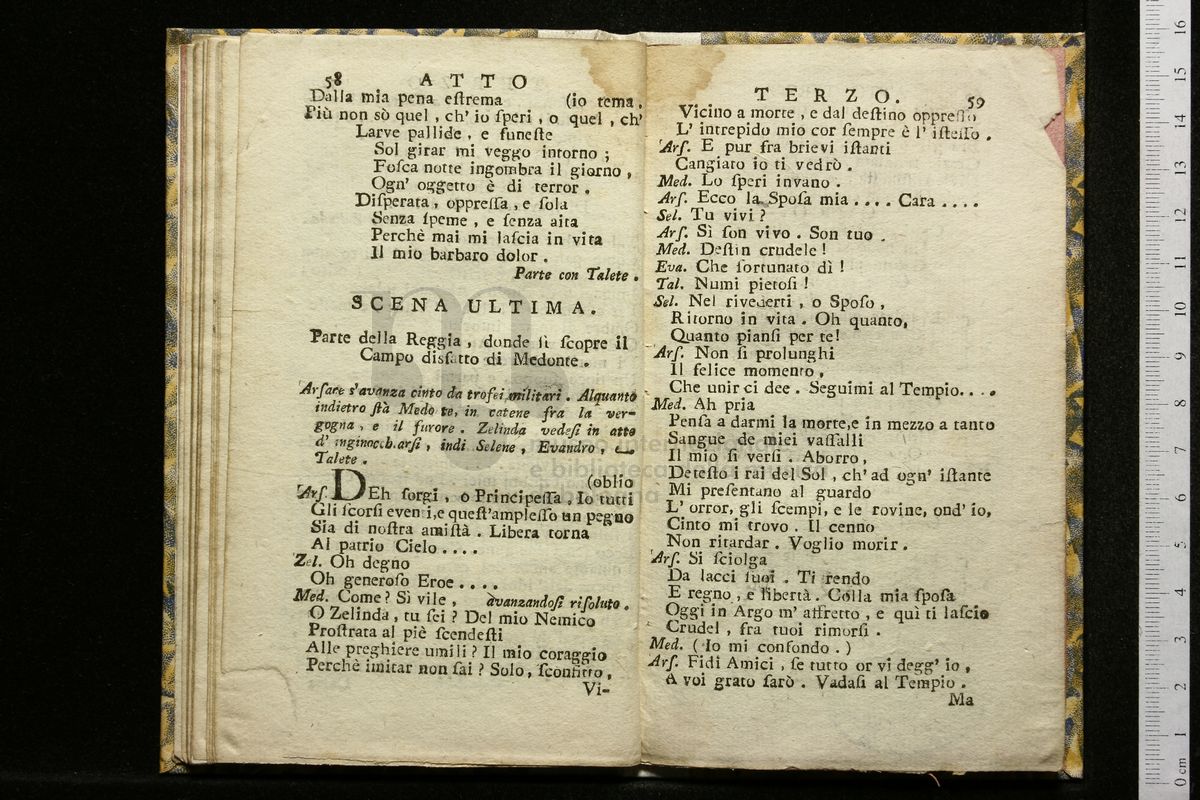 58 ATTO
Dalla mia pena eſtrema (io tema,
Più non sò quel, ch' io ſperi, o quel, ch'
Larve pallide, e funeſte
Sol girar mi veggo intorno;
Foſca notte ingombra il giorno,
Ogn' oggetto è di terror.
Diſperata, oppreſſa, e ſola
Senza ſpeme, e ſenza aita
Perchè mai mi laſcia in vita
Il mio barbaro dolor.
Parte con Talete.
SCENA ULTIMA.
Parte della Reggia, donde ſi ſcopre il
Campo disfatto di Medonte.
Arſace s'avanza cinto da trofei militari. Alquanto
indietro ſtà Medo te, in catene fra la ver-
gogna, e il furore. Zelinda vedeſi in atto
d' inginocch.arſi, indi Selene, Evandro, e
Talete.
(oblio
Arſ. DEh ſorgi, o Principeſſa. Io tutti
Gli ſcorſi even i, e queſt'ampleſſo un pegno
Sia di noſtra amiſtà. Libera torna
Al patrio Cielo....
Zel. Oh degno
Oh generoſo Eroe....
Med. Come? Sì vile, avanzandoſi riſoluto.
O Zelinda, tu ſei? Del mio Nemico
Proſtrata al piè ſcendeſti
Alle preghiere umili? Il mio coraggio
Perchè imitar non ſai? Solo, ſconfitto,
Vi-
TERZO. 59
Vicino a morte, e dal deſtino oppreſſo
L' intrepido mio cor ſempre è l' iſteſſo.
Arſ. E pur fra brievi iſtanti
Cangiato io ti vedrò.
Med. Lo ſperi invano.
Arſ. Ecco la Spoſa mia.... Cara....
Sel. Tu vivi?
Arſ. Sì ſon vivo. Son tuo.
Med. Deſtin crudele!
Eva. Che fortunato dì!
Tal. Numi pietoſi!
Sel. Nel rivederti, o Spoſo,
Ritorno in vita. Oh quanto,
Quanto pianſi per te!
Arſ. Non ſi prolunghi
Il felice momento,
Che unir ci dee. Seguimi al Tempio....
Med. Ah pria
Penſa a darmi la morte, e in mezzo a tanto
Sangue de miei vaſſalli
Il mio ſi verſi. Aborro,
Deteſto i rai del Sol, ch' ad ogn' iſtante
Mi preſentano al guardo
L' orror, gli ſcempi, e le rovine, ond' io,
Cinto mi trovo. Il cenno
Non ritardar. Voglio morir.
Arſ. Si ſciolga
Da lacci ſuoi. Ti rendo
E regno, e libertà. Colla mia ſpoſa
Oggi in Argo m' affretto, e quì ti laſcio
Crudel, fra tuoi rimorſi.
Med. (Io mi confondo.)
Arſ. Fidi Amici, ſe tutto or vi degg' io,
A voi grato ſarò. Vadaſi al Tempio.
Ma